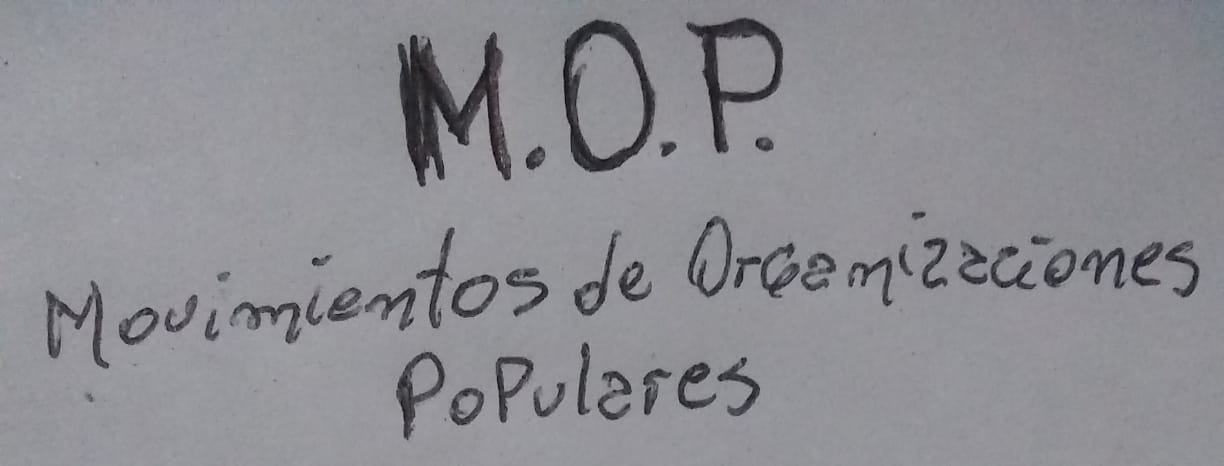 M.O.P.
Movimientos de Organizaciones
Populares